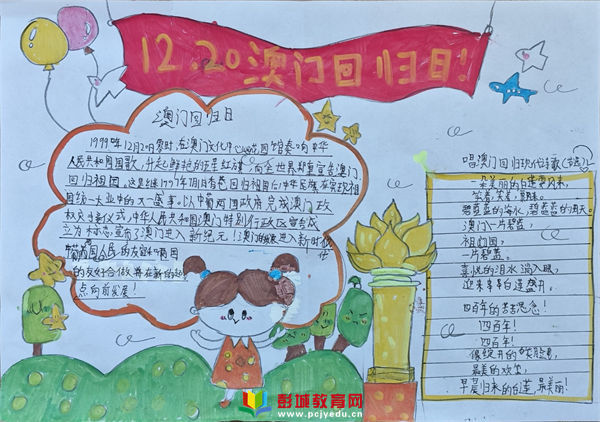 12.20澳门回归日!
澳门回归日
1999年12月20日零时,在澳门文化中心花园馆奏响中华
人民共和国国歌,升起鲜艳的五星红旗,向全世界郑重宣告澳门
回归祖国。这是继1997年7月1日香港回归祖国后,中华民族在实现祖
国统一大业中的又一盛事。以中葡两国政府完成澳门政
权交接仪式,中华人民共和国澳门特别行政区宣告成
立为标志,宣布了澳门进入新纪元!澳门的发展进入新时代
的友好合作将在新的起
点向前发展!
唱澳门回归现代诗歌(节选)
朵美丽的白莲要归来,
笑着,笑着,
碧蓝蓝的海水,碧蓝蓝的海天。
澳门一片碧蓝,
祖国
一片碧蓝。
喜悦的泪水淌入眼,
迎来丰丰白莲盛开。
四百年的苦苦思念!
四百年!
四百年!
像绽开的
最美的欢笑,
早晨归来的白莲,最美丽!
彭城教育网
www.pcjyedu.cn